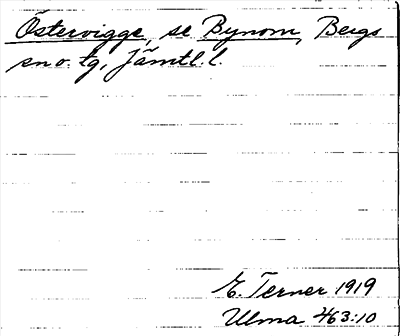 Östervigge, se Bynom, Bergs
sn o. tg, Jämtl. l.
E. Terner 1919
Ulma 463:10